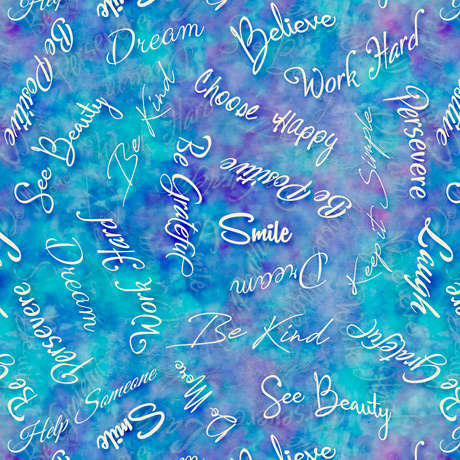 Smile
Dream
Believe
Work Hard
Be Positive
Choose Happy
Be Kind
See Beauty
Persevere
Keep it Simple
Be Grateful
Be Positive
Smile
Work Hard
Dream
Dream
Laugh
Persevere
Be Kind
Be Grateful
Help Someone
Do More
See Beauty
Smile
Believe